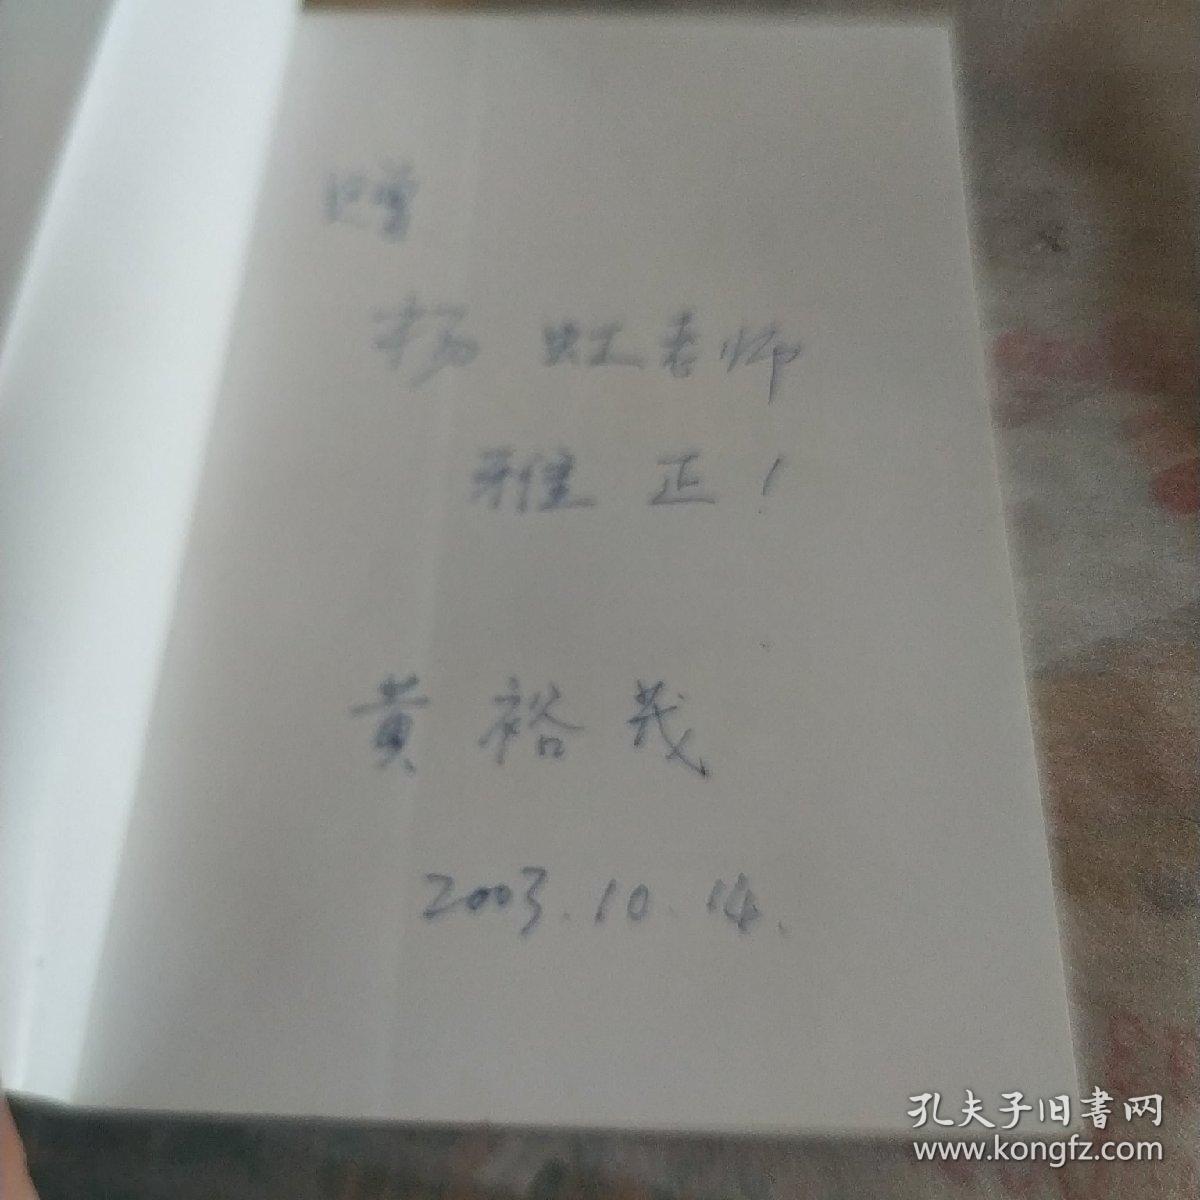 赠
杨虹老师
雅正！
黄裕茂
2003.10.14.
孔夫子旧書网
www.kongfz.com